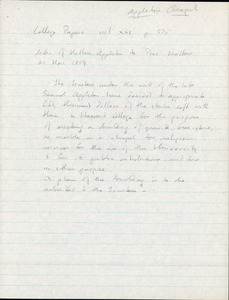 Appleton Chapel
College Papers vol XXI p
Letter of Nathan Appleton to Pres Walker
Nov. 1854
The Trustees under the will of the late
Samuel Appleton have agreed to appropriate
Fifty thousand Dollars of the stocks left with
them, to Harvard College for the purpose
of erecting a building of granite, free stone,
or marble as a chapel for religious
services for the use of the University
& for
no other purpose
A plan of the building is to be
submitted to the Trustees